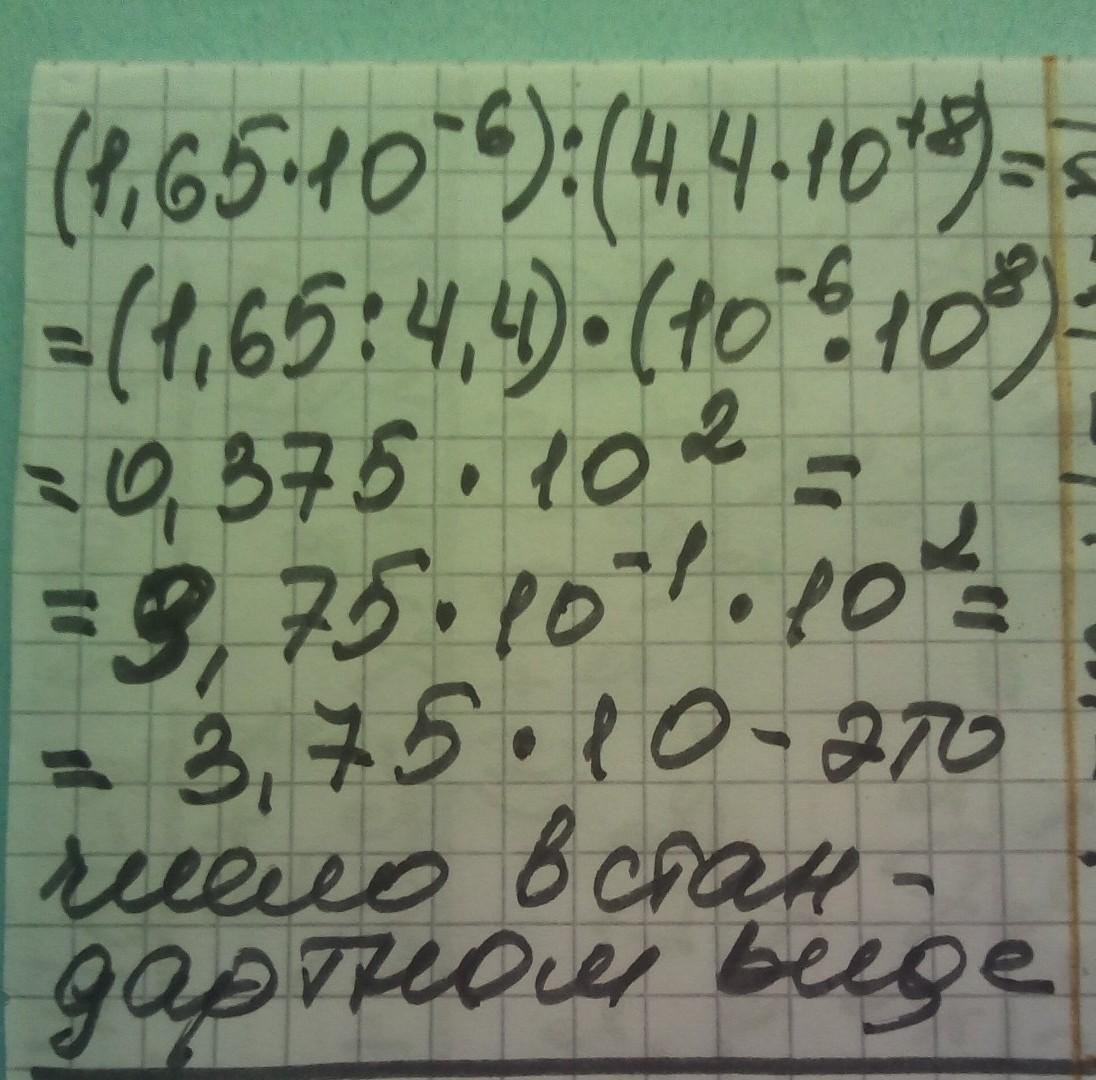 (1,65·10⁻⁶):(4,4·10⁺⁸)=
=(1,65:4,4)·(10⁻⁶·10⁸)
=0,375·10² =
=3,75·10⁻¹·10²=
= 3,75·10 - это
число в стан-
дартном виде